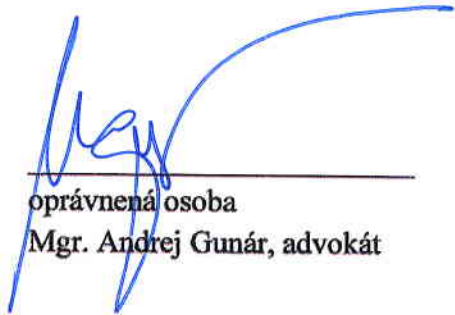 oprávnená osoba
Mgr. Andrej Gunár, advokát